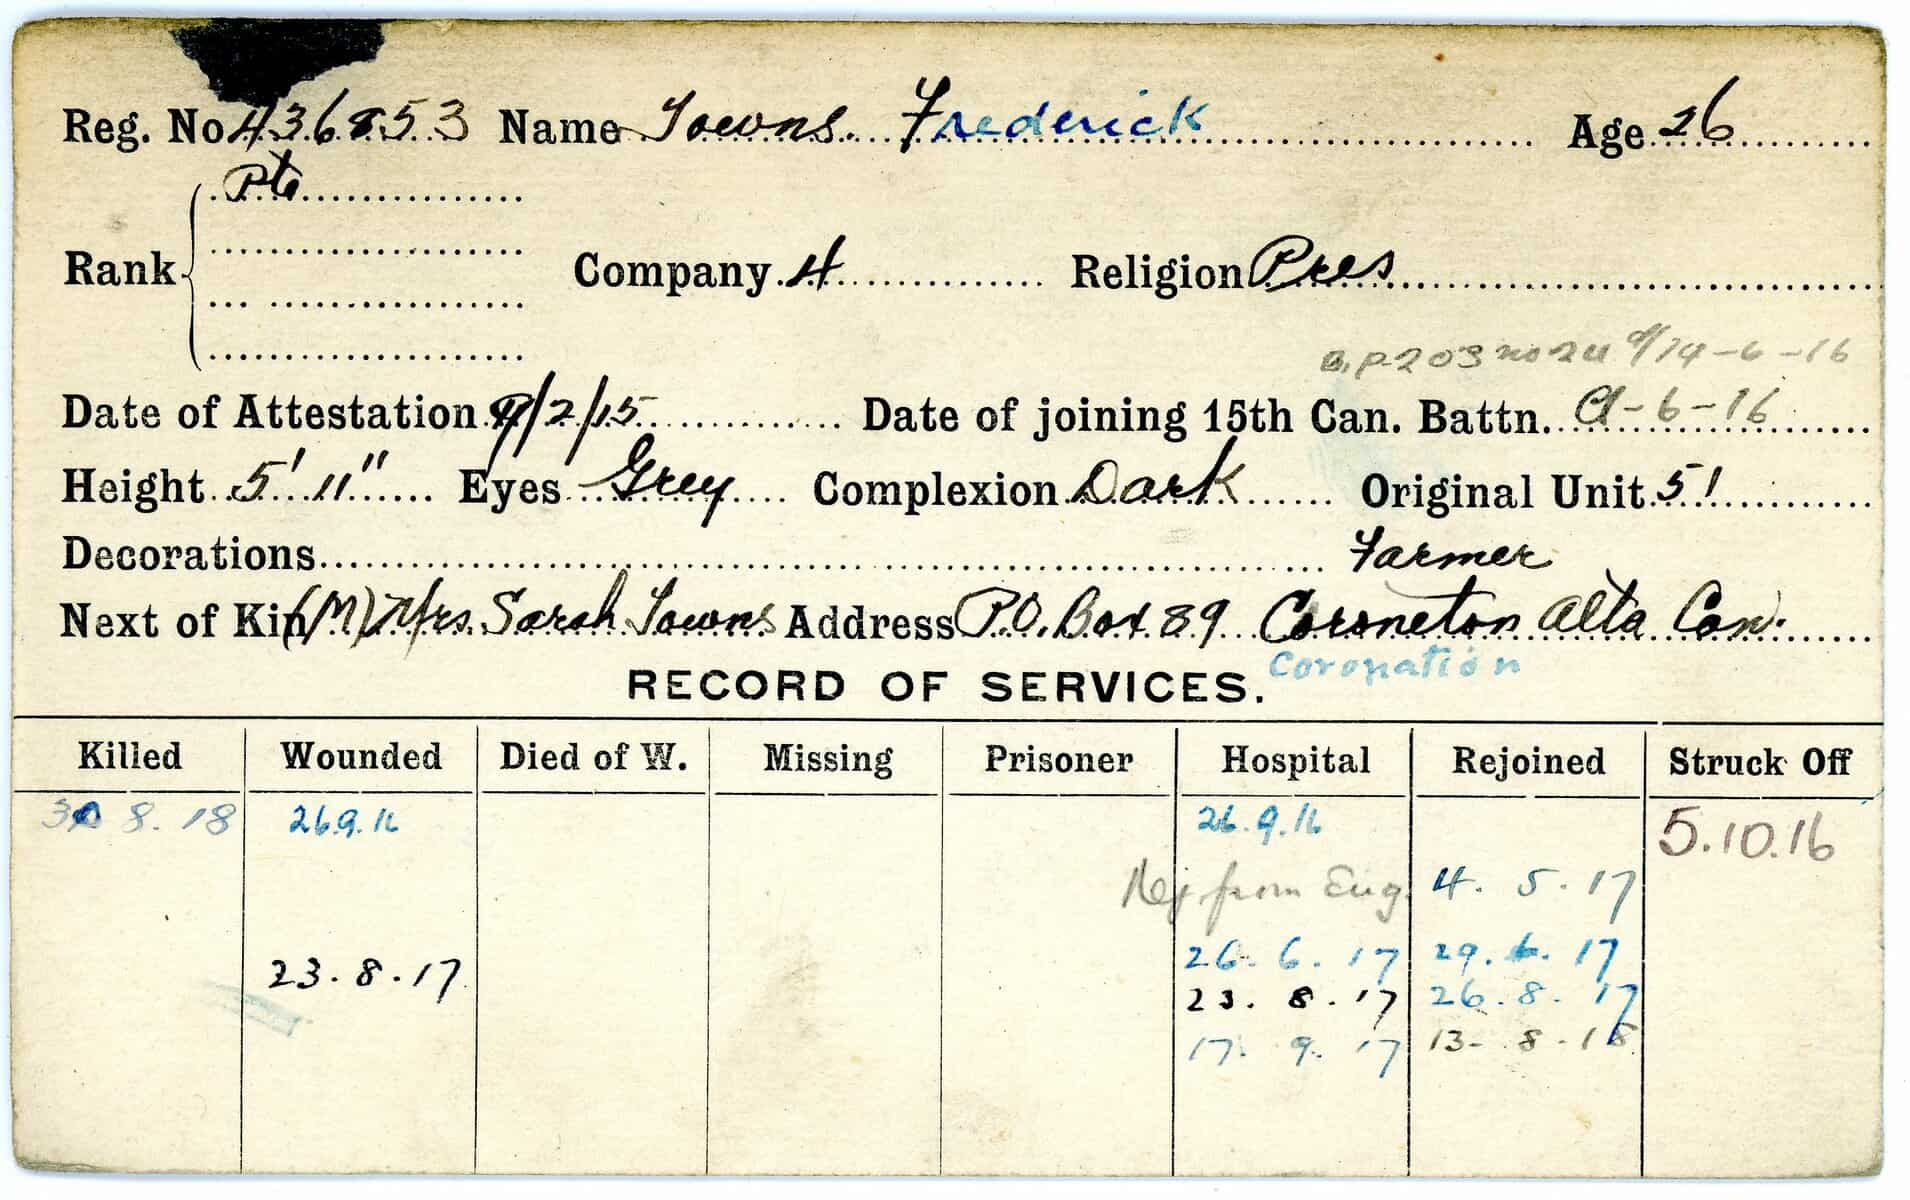 Reg. No 436853 Name Towns. Frederick Age 26
Pte
Rank Company 4 Religion Pres
B.P. 203 no 24 d/14-6-16
Date of Attestation /2/15 Date of joining 15th Can. Battn. -6-16
Height 5' 11" Eyes Grey Complexion Dark Original Unit 51
Decorations Farmer
Next of Kin (M) Mrs. Sarah Towns Address P.O. Box 89 Coroneton Alta Can.
Coronation
RECORD OF SERVICES.
Killed Wounded Died of W. Missing Prisoner Hospital Rejoined Struck Off
8. 18 26.9.16 26.9.16 5.10.16
Rej from Eng. 4. 5. 17
26. 6. 17 29. 6. 17
23. 8. 17 23. 8. 17 26. 8. 17
17. 9. 17 13- 8 - 18